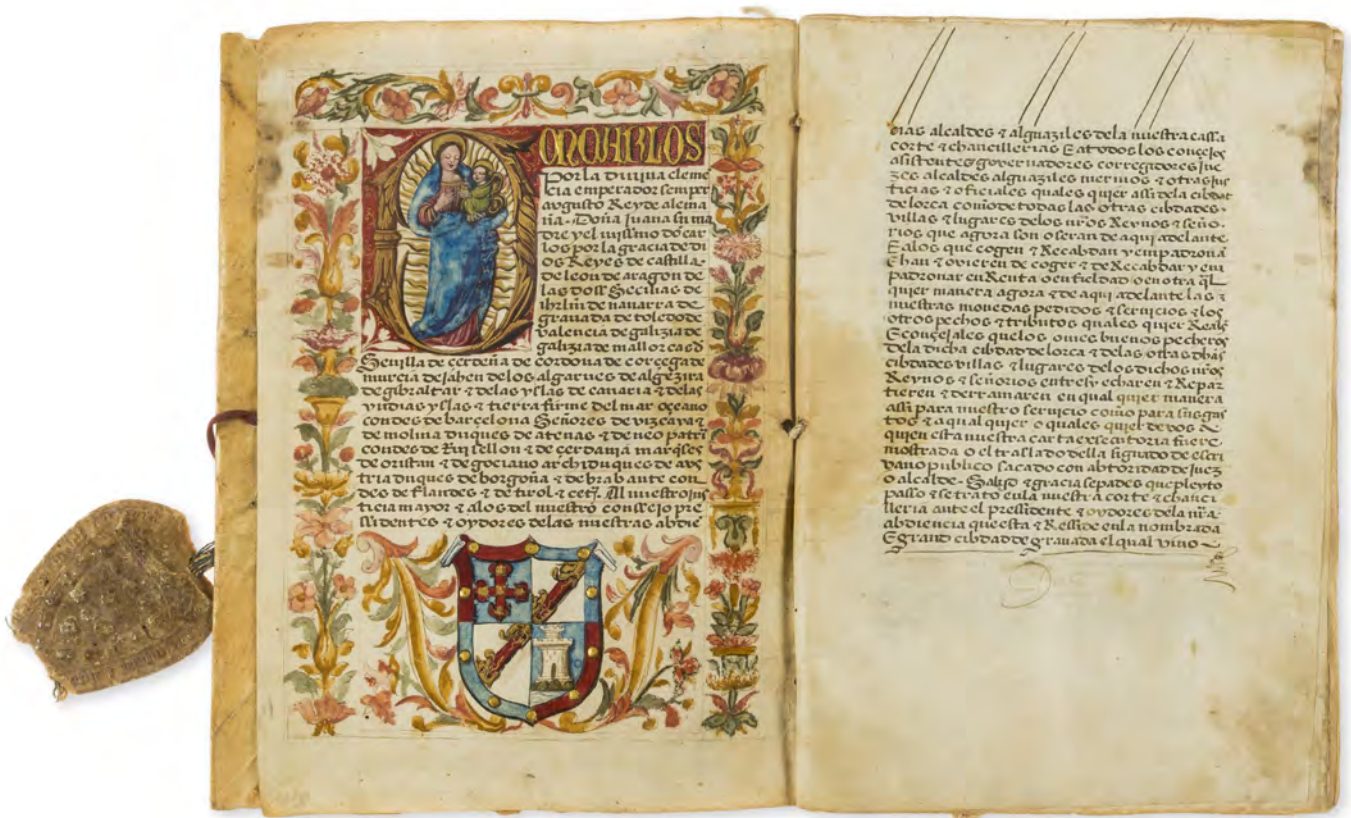 DON CARLOS
Por la diuina cleme
cia emperador semper
augusto Rey de alema
ña. Doña Juana su ma
dre y el mismo dō car
los por la gracia de di
os Reyes de castilla
de leon de aragon de
las dos Secilias de
ihrlm̄ de nauarra de
granada de toledo de
valencia de galizia de
galizia de mallorcas d
Seuilla de cerdeña de cordoua de corçega de
murcia de jahen delos algarues de algezira
de gibraltar & delas yslas de canaria & delas
yndias yslas & tierra firme del mar oçeano
condes de barçelona Señores de vizcaya &
de molina duques de atenas & de neo patri
condes de Ruysellon & de çerdania marqses
de oristan & de goçiano archiduques de aus
tria duques de borgoña & de brabante con
des de flandes & de tirol & cet. Al nuestro jus
ticia mayor & alos del nuestro consejo pre
sidentes & oydores delas nuestras abdiē
cias alcaldes & alguaziles dela nuestra casa
corte & chancillerias E a todos los conçejos
asistentes governadores corregidores jue
zes alcaldes alguaziles merinos & otras jus
ticias & oficiales quales quier assi dela cibdat
de lorca como de todas las otras cibdades
villas & lugares delos nros Reynos & seño
rios que agora son o seran de aqui adelante
E alos que cogen & Recabdan y empadronā
E han & ovieren de coger & de Recabdar y em
padronar en Renta o en fieldad o en otra ql
quier manera agora & de aqui adelante las
nuestras monedas pedidos & servicios & los
otros pechos & tributos quales quier Reals
E conçejales quelos omes buenos pecheros
dela dicha cibdad de lorca & delas otras dhas
cibdades villas & lugares delos dichos nros
Reynos & señorios entresy echaren & Repar
tieren & derramaren en qual quier manera
assi para nuestro servicio como para sus gas
tos & a qual quier o quales quier de vos a
quien esta nuestra carta executoria fuere
mostrada o el traslado della signado de escri
vano publico sacado con abtoridad de juez
o alcalde. Salud & gracia sepades que pleyto
passo & se trato enla nuestra corte & chanci
lleria ante el presidente & oydores dela nra
abdiencia que esta & Reside enla nombrada
E grand cibdad de granada el qual vino